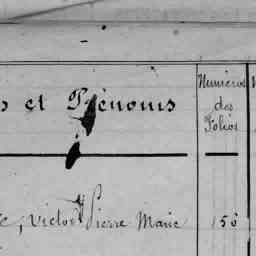 s et Prénoms
Numéros
des
Folios
c, Victor Pierre Marie 156